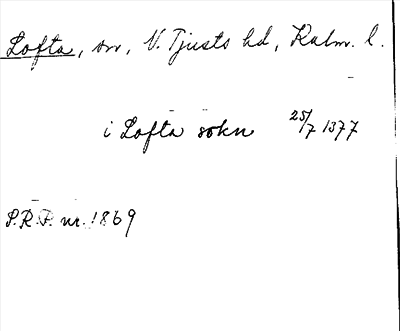 Lofta, sn, N. Tjusts hd, Kalm. l.
i Lofta sokn 25/7 1377
S.R.P. nr. 1869